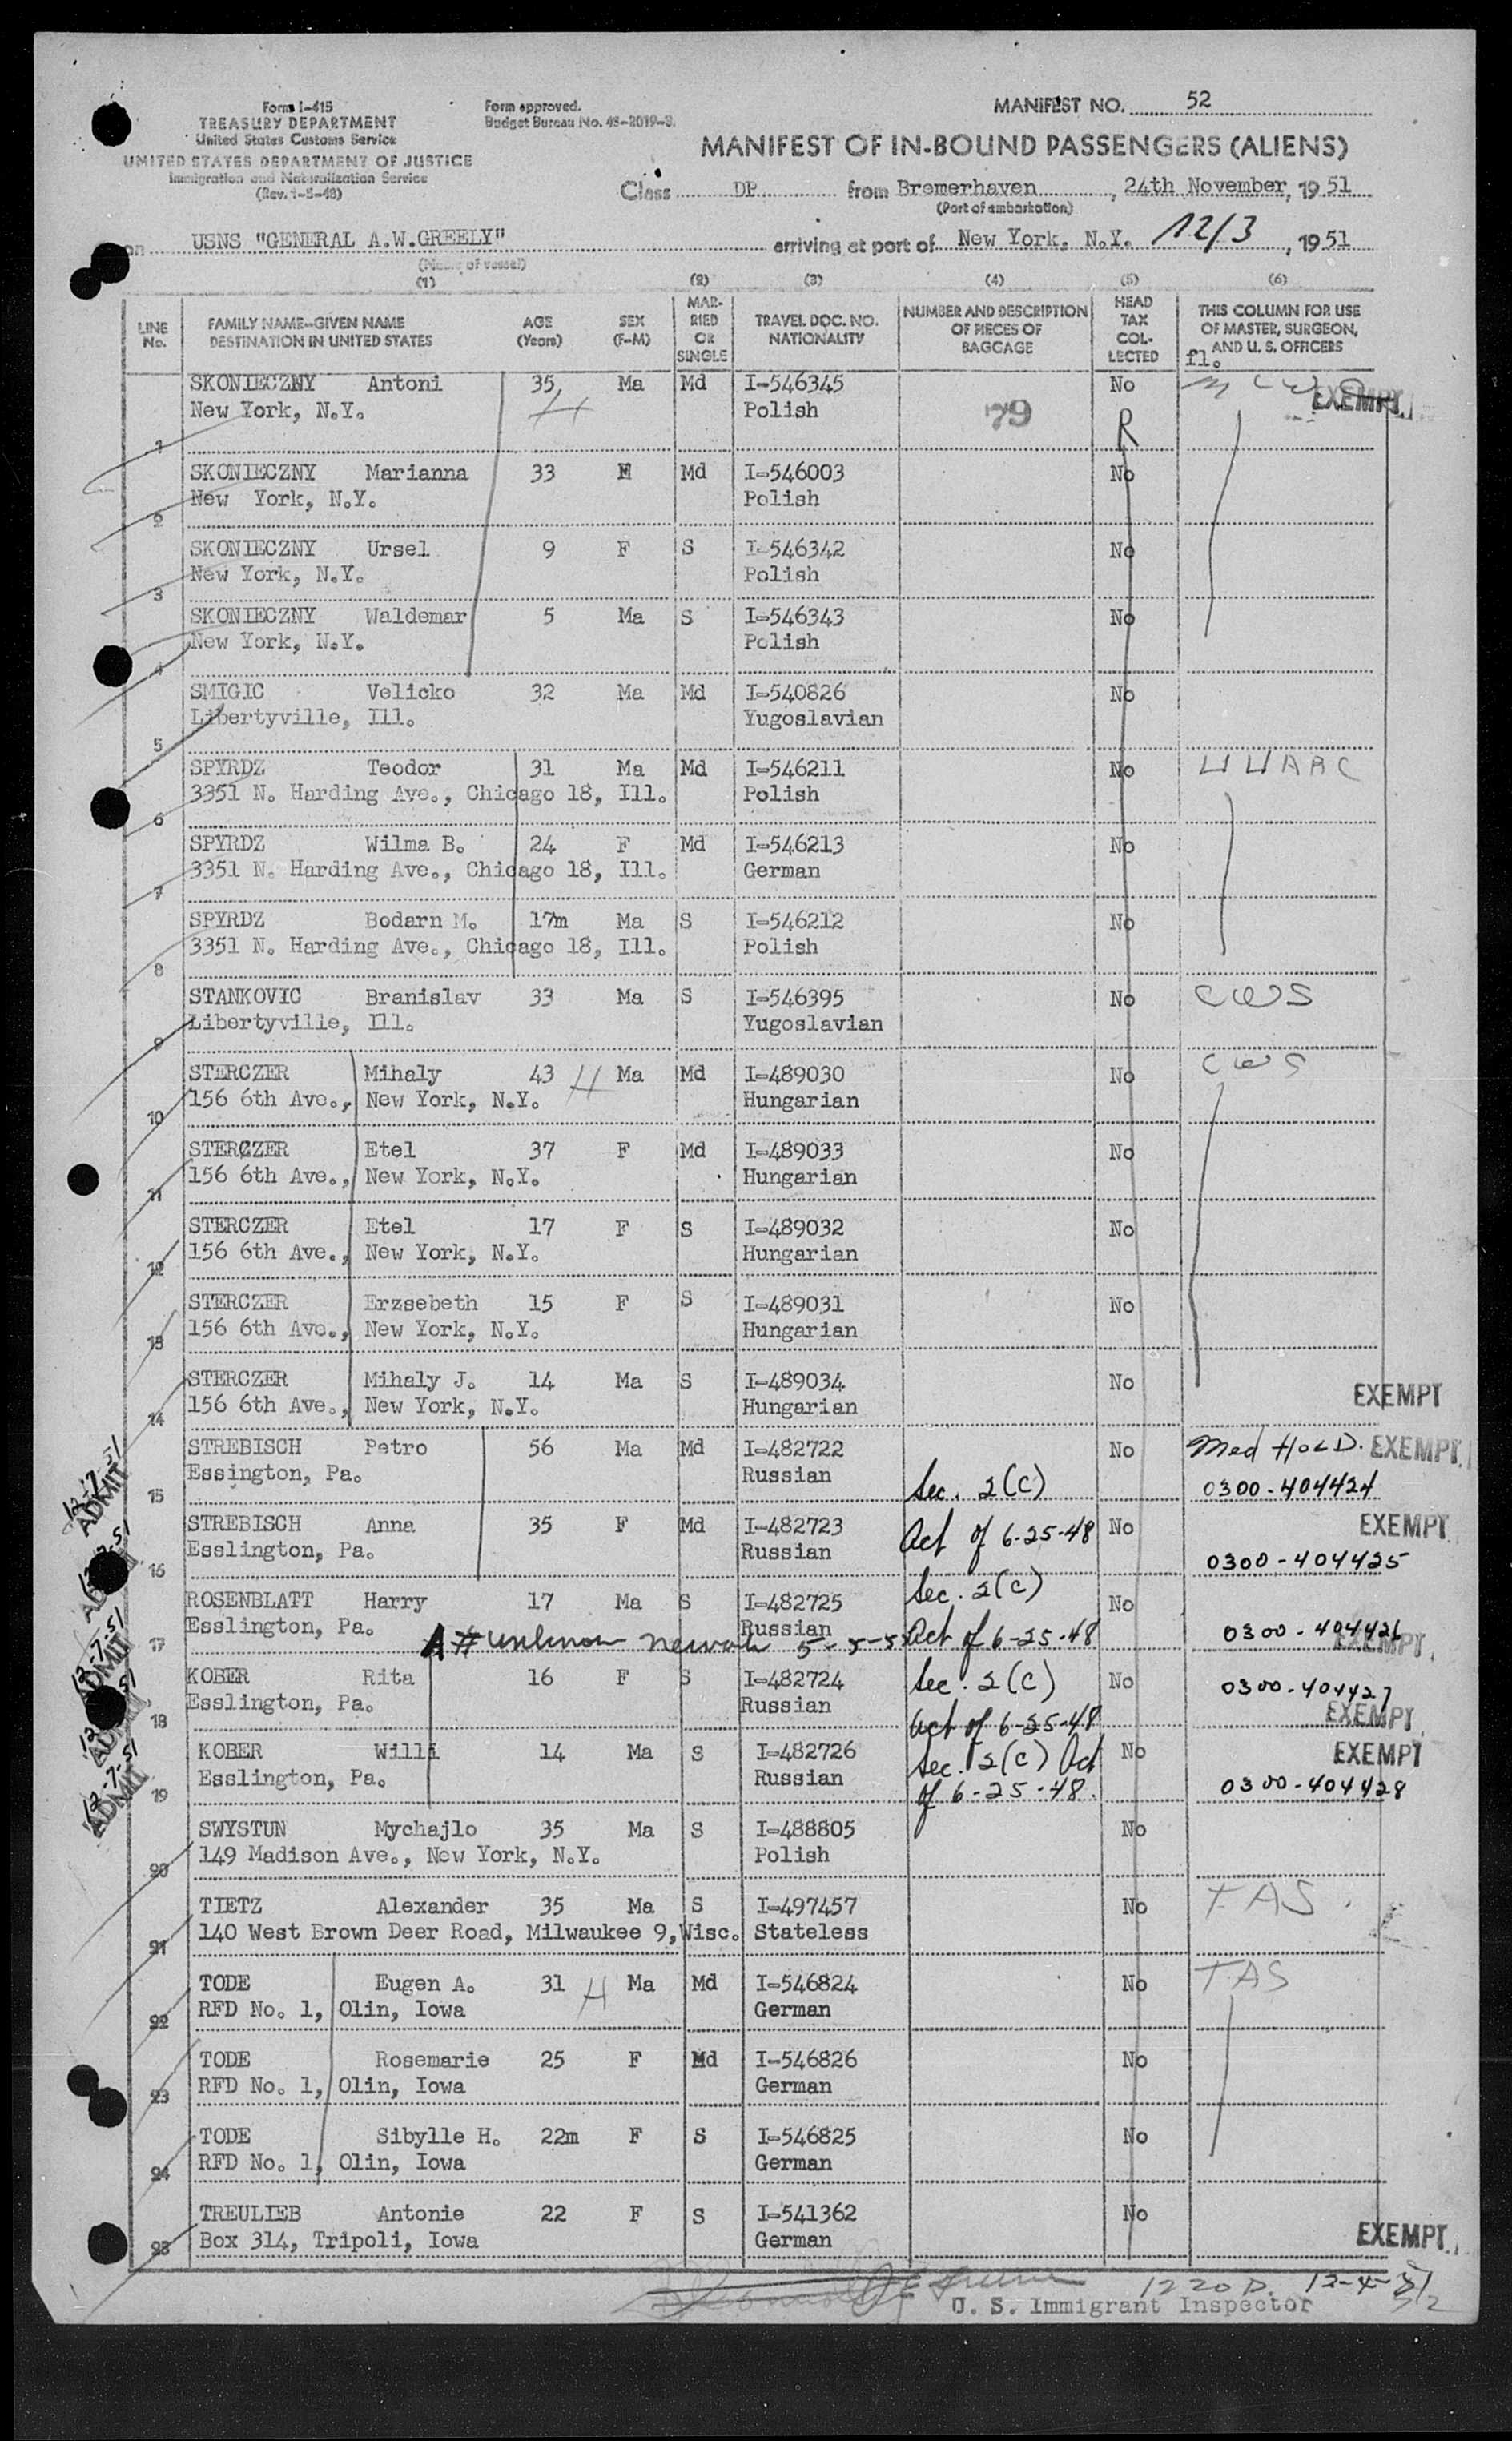 Form I-415
TREASURY DEPARTMENT
United States Customs Service
UNITED STATES DEPARTMENT OF JUSTICE
Immigration and Naturalization Service
(Rev. 1-5-48)
Form approved.
Budget Bureau No. 43-R019-3.
MANIFEST NO. 52
MANIFEST OF IN-BOUND PASSENGERS (ALIENS)
Class DP from Bremerhaven, 24th November, 1951
(Port of embarkation)
on USNS "GENERAL A.W.GREELY" arriving at port of New York, N.Y. 12/3, 1951
(Name of vessel)
(1) (2) (3) (4) (5) (6)
LINE No. FAMILY NAME—GIVEN NAME DESTINATION IN UNITED STATES AGE (Years) SEX (F-M) MARRIED OR SINGLE TRAVEL DOC. NO. NATIONALITY NUMBER AND DESCRIPTION OF PIECES OF BAGGAGE HEAD TAX COLLECTED THIS COLUMN FOR USE OF MASTER, SURGEON, AND U. S. OFFICERS
fl.
SKONIECZNY Antoni 35 Ma Md I-546345 No EXEMPT
1 New York, N.Y. H Polish 79 R
SKONIECZNY Marianna 33 Md I-546003 No
2 New York, N.Y. Polish
SKONIECZNY Ursel 9 F S I-546342 No
3 New York, N.Y. Polish
SKONIECZNY Waldemar 5 Ma S I-546343 No
4 New York, N.Y. Polish
SMIGIC Velicko 32 Ma Md I-540826 No
5 Libertyville, Ill. Yugoslavian
SPYRDZ Teodor 31 Ma Md I-546211 No
6 3351 N. Harding Ave., Chicago 18, Ill. Polish
SPYRDZ Wilma B. 24 F Md I-546213 No
7 3351 N. Harding Ave., Chicago 18, Ill. German
SPYRDZ Bodarn M. 17m Ma S I-546212 No
8 3351 N. Harding Ave., Chicago 18, Ill. Polish
STANKOVIC Branislav 33 Ma S I-546395 No CWS
9 Libertyville, Ill. Yugoslavian
STERCZER Mihaly 43 H Ma Md I-489030 No CWS
10 156 6th Ave., New York, N.Y. Hungarian
STERCZER Etel 37 F Md I-489033 No
11 156 6th Ave., New York, N.Y. Hungarian
STERCZER Etel 17 F S I-489032 No
12 156 6th Ave., New York, N.Y. Hungarian
STERCZER Erzsebeth 15 F S I-489031 No
13 156 6th Ave., New York, N.Y. Hungarian
STERCZER Mihaly J. 14 Ma S I-489034 No EXEMPT
14 156 6th Ave., New York, N.Y. Hungarian
STREBISCH Petro 56 Ma Md I-482722 No Med HOLD. EXEMPT
15 Essington, Pa. Russian Sec. 2(C) 0300-404424
12-7-51 ADMIT
STREBISCH Anna 35 F Md I-482723 Act of 6-25-48 No EXEMPT
16 Esslington, Pa. Russian 0300-404425
ROSENBLATT Harry 17 Ma S I-482725 Sec. 2(C) No
17 Esslington, Pa. Russian Act of 6-25-48 0300-404426 EXEMPT
12-7-51 ADMIT
KOBER Rita 16 F S I-482724 Sec. 2(C) No 0300-404427
18 Esslington, Pa. Russian Act of 6-25-48 EXEMPT
KOBER Willi 14 Ma S I-482726 Sec. 2(C) Act No EXEMPT
19 Esslington, Pa. Russian of 6-25-48. 0300-404428
12-7-51 ADMIT
SWYSTUN Mychajlo 35 Ma S I-488805 No
20 149 Madison Ave., New York, N.Y. Polish
TIETZ Alexander 35 Ma S I-497457 No TAS
21 140 West Brown Deer Road, Milwaukee 9,Wisc. Stateless
TODE Eugen A. 31 H Ma Md I-546824 No TAS
22 RFD No. 1, Olin, Iowa German
TODE Rosemarie 25 F Md I-546826 No
23 RFD No. 1, Olin, Iowa German
TODE Sibylle H. 22m F S I-546825 No
24 RFD No. 1, Olin, Iowa German
TREULIEB Antonie 22 F S I-541362 No
25 Box 314, Tripoli, Iowa German EXEMPT
1220 D. 12-4-51
U. S. Immigrant Inspector